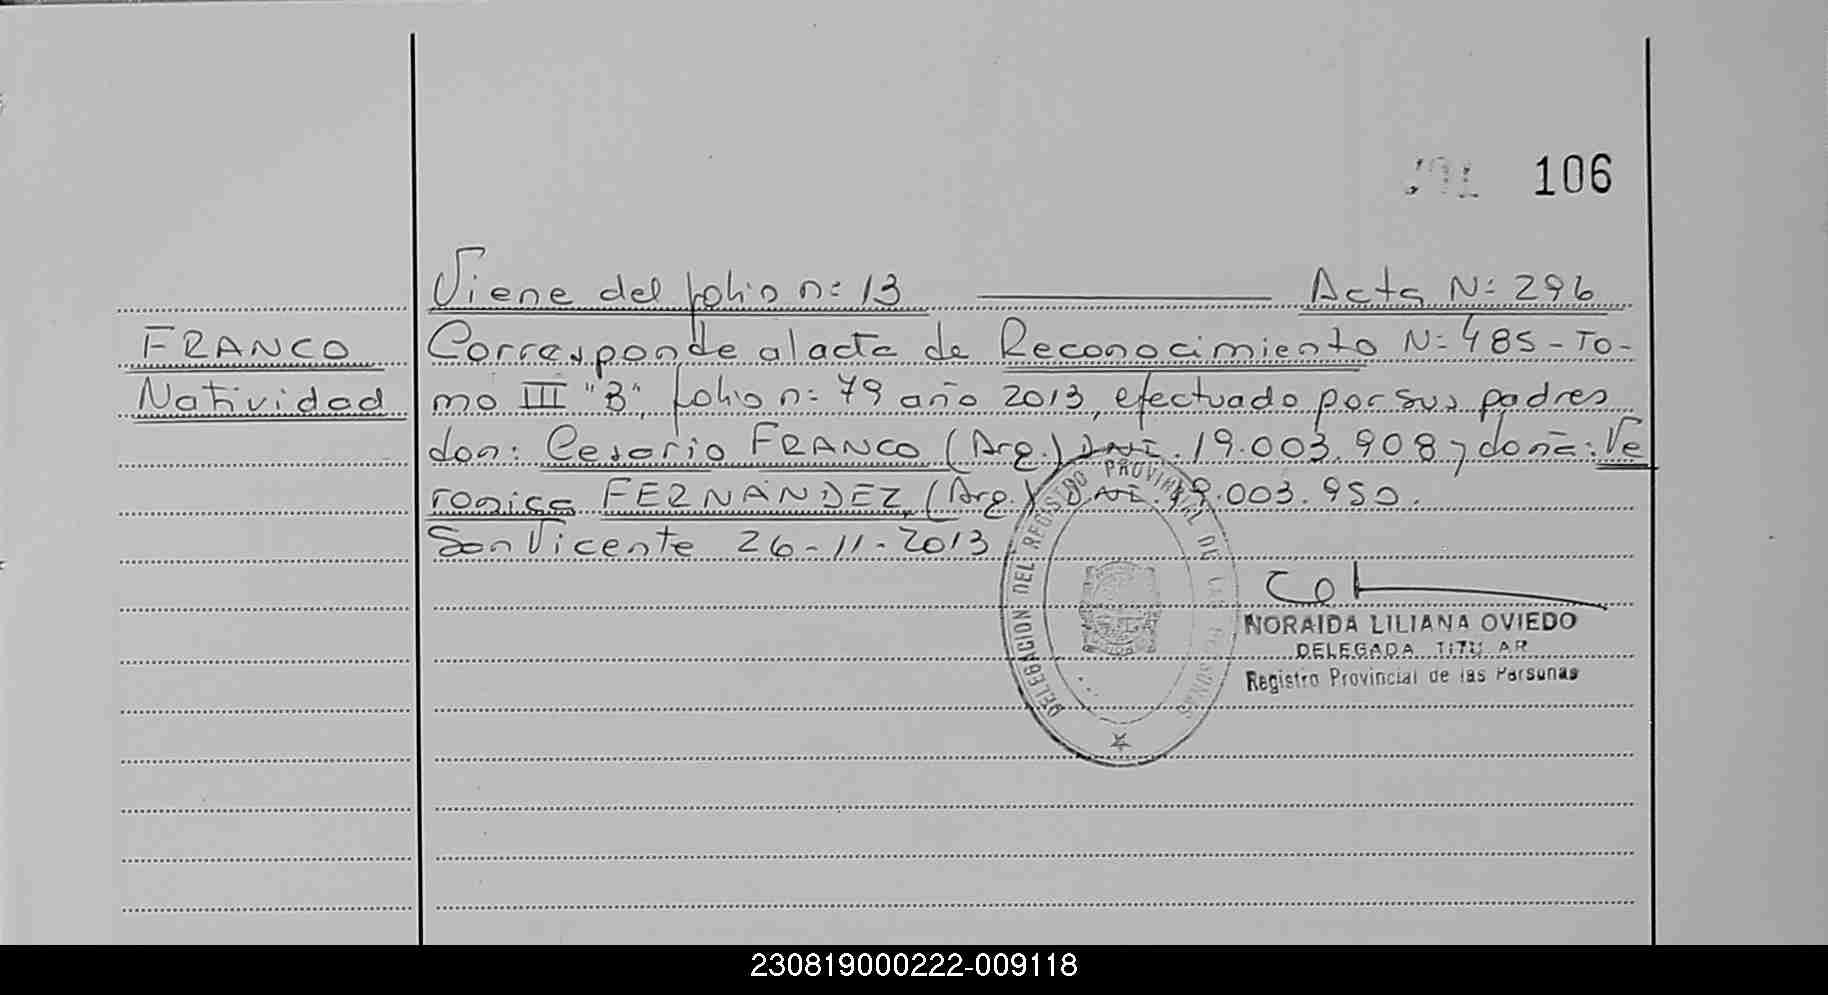 106
Viene del folio n: 13 Acta N: 296
FRANCO Corresponde al acta de Reconocimiento N: 485 - To-
Natividad mo III "B", folio n: 79 año 2013, efectuado por sus padres
don: Cesario FRANCO (Arg.) DNI. 19.003.908 y doña: Ve
ronica FERNANDEZ, (Arg.) DNI. 19.003.950.
San Vicente 26-11-2013
DELEGACION DEL REGISTRO PROVINCIAL DE LAS PERSONAS
NORAIDA LILIANA OVIEDO
DELEGADA TITU AR
Registro Provincial de las Personas
230819000222-009118